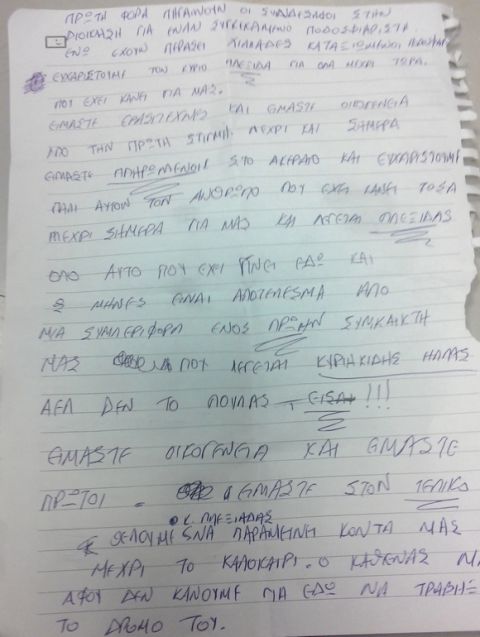 ΠΡΩΤΗ ΦΟΡΑ ΠΗΓΑΙΝΟΥΝ ΟΙ ΣΥΝΔΕΣΜΟΙ ΣΤΗΝ
ΔΙΟΙΚΗΣΗ ΓΙΑ ΕΝΑΝ ΣΥΓΚΕΚΡΙΜΕΝΟ ΠΟΔΟΣΦΑΙΡΙΣΤΗ
ΕΝΩ ΕΧΟΥΝ ΠΕΡΑΣΕΙ ΧΙΛΙΑΔΕΣ ΚΑΤΑΞΙΩΜΕΝΟΙ
ΕΥΧΑΡΙΣΤΟΥΜΕ ΤΟΝ ΚΥΡΙΟ ΠΛΕΞΙΔΑ ΓΙΑ ΟΛΑ ΜΕΧΡΙ ΤΩΡΑ.
ΠΟΥ ΕΧΕΙ ΚΑΝΕΙ ΓΙΑ ΜΑΣ.
ΕΙΜΑΣΤΕ ΕΡΑΣΙΤΕΧΝΕΣ ΚΑΙ ΕΙΜΑΣΤΕ ΟΙΚΟΓΕΝΕΙΑ
ΑΠΟ ΤΗΝ ΠΡΩΤΗ ΣΤΙΓΜΗ. ΜΕΧΡΙ ΚΑΙ ΣΗΜΕΡΑ
ΕΙΜΑΣΤΕ ΠΛΗΡΩΜΕΝΟΙ ΣΤΟ ΑΚΕΡΑΙΟ ΚΑΙ ΕΥΧΑΡΙΣΤΟΥΜΕ
ΠΑΛΙ ΑΥΤΟΝ ΤΟΝ ΑΝΘΡΩΠΟ ΠΟΥ ΕΧΕΙ ΚΑΝΕΙ ΤΟΣΑ
ΜΕΧΡΙ ΣΗΜΕΡΑ ΓΙΑ ΜΑΣ ΚΑΙ ΛΕΓΕΤΑΙ ΠΛΕΞΙΔΑΣ
ΟΛΟ ΑΥΤΟ ΠΟΥ ΕΧΕΙ ΓΙΝΕΙ ΕΔΩ ΚΑΙ
ΜΗΝΕΣ ΕΙΝΑΙ ΑΠΟΤΕΛΕΣΜΑ ΑΠΟ
ΜΙΑ ΣΥΜΠΕΡΙΦΟΡΑ ΕΝΟΣ ΠΡΩΗΝ ΣΥΜΠΑΙΚΤΗ
ΜΑΣ ΠΟΥ ΛΕΓΕΤΑΙ ΚΥΡΙΑΚΙΔΗΣ ΗΛΙΑΣ
ΑΕΛ ΔΕΝ ΤΟ ΠΟΥΛΑΣ, ΕΙΣΑΙ!!!
ΕΙΜΑΣΤΕ ΟΙΚΟΓΕΝΕΙΑ ΚΑΙ ΕΙΜΑΣΤΕ
ΠΡΩΤΟΙ - ΕΙΜΑΣΤΕ ΣΤΟΝ ΤΕΛΙΚΟ
Ο Κ. ΠΛΕΞΙΔΑΣ
ΘΕΛΟΥΜΕ ΝΑ ΠΑΡΑΜΕΙΝΕΙ ΚΟΝΤΑ ΜΑΣ
ΜΕΧΡΙ ΤΟ ΚΑΛΟΚΑΙΡΙ. Ο ΚΑΘΕΝΑΣ
ΑΦΟΥ ΔΕΝ ΚΑΝΟΥΜΕ ΓΙΑ ΕΔΩ ΝΑ ΤΡΑΒΗΞ
ΤΟ ΔΡΟΜΟ ΤΟΥ.